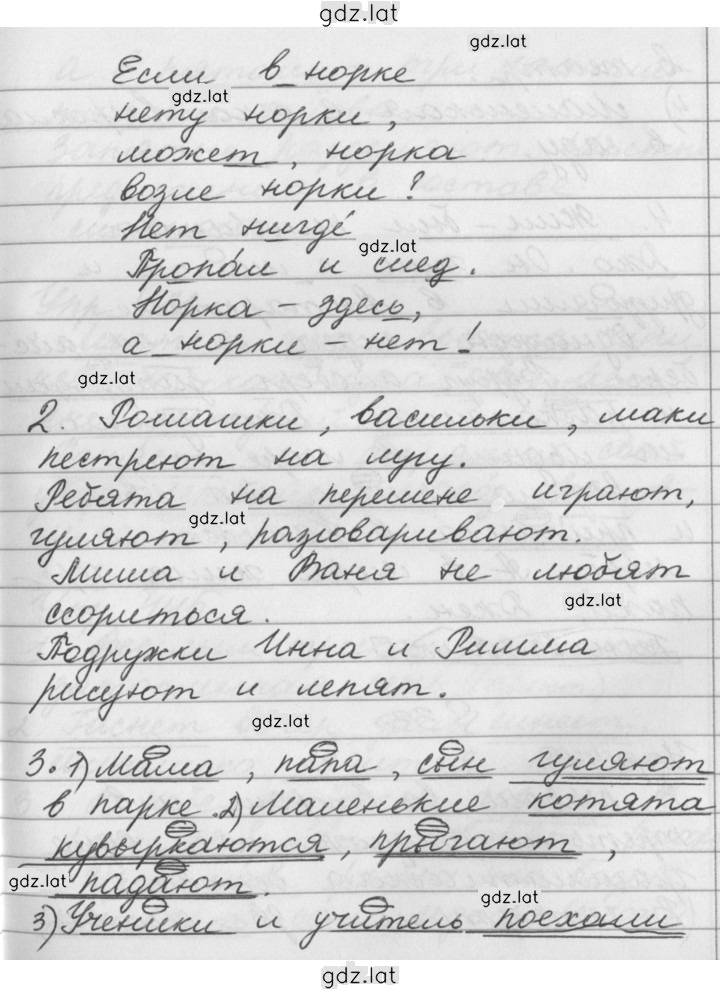 gdz.lat
gdz.lat
Если в норке
gdz.lat
нету норки,
может, норка
возле норки?
Нет нигде́
gdz.lat
Пропа́л и след.
Норка – здесь,
а норки – нет!
gdz.lat
2. Ромашки, васильки, маки
пестреют на лугу.
Ребята на перемене играют,
gdz.lat
гуляют, разговаривают.
Миша и Ваня не любят
gdz.lat
ссориться.
Подружки Инна и Римма
рисуют и лепят.
gdz.lat
3. 1) Мама, папа, сын гуляют
в парке. 2) Маленькие котята
кувыркаются, прыгают,
gdz.lat
падают.
gdz.lat
3) Ученики и учитель поехали
gdz.lat